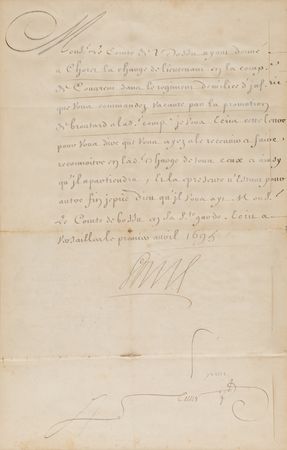 Mons.r le Comte de Bossu ayant donné
a Thorer la charge de lieutenant en la comp.e
de Couurem dans le regiment de milice d'inf.rie
que vous commandez vacante par la promotion
de broutard a lad.e comp.e je vous écris cette lettre
pour vous dire que vous ayez a le recevoir et faire
reconnoitre en lad.e charge de tous ceux et ainsy
qu'il appartiendra, Et la presente n'estant pour
autre fin je prie Dieu qu'il vous ayt Mons.r
le Comte de bossu en sa s.te garde. Ecrit a
Versailles le premier avril 1695
Louis